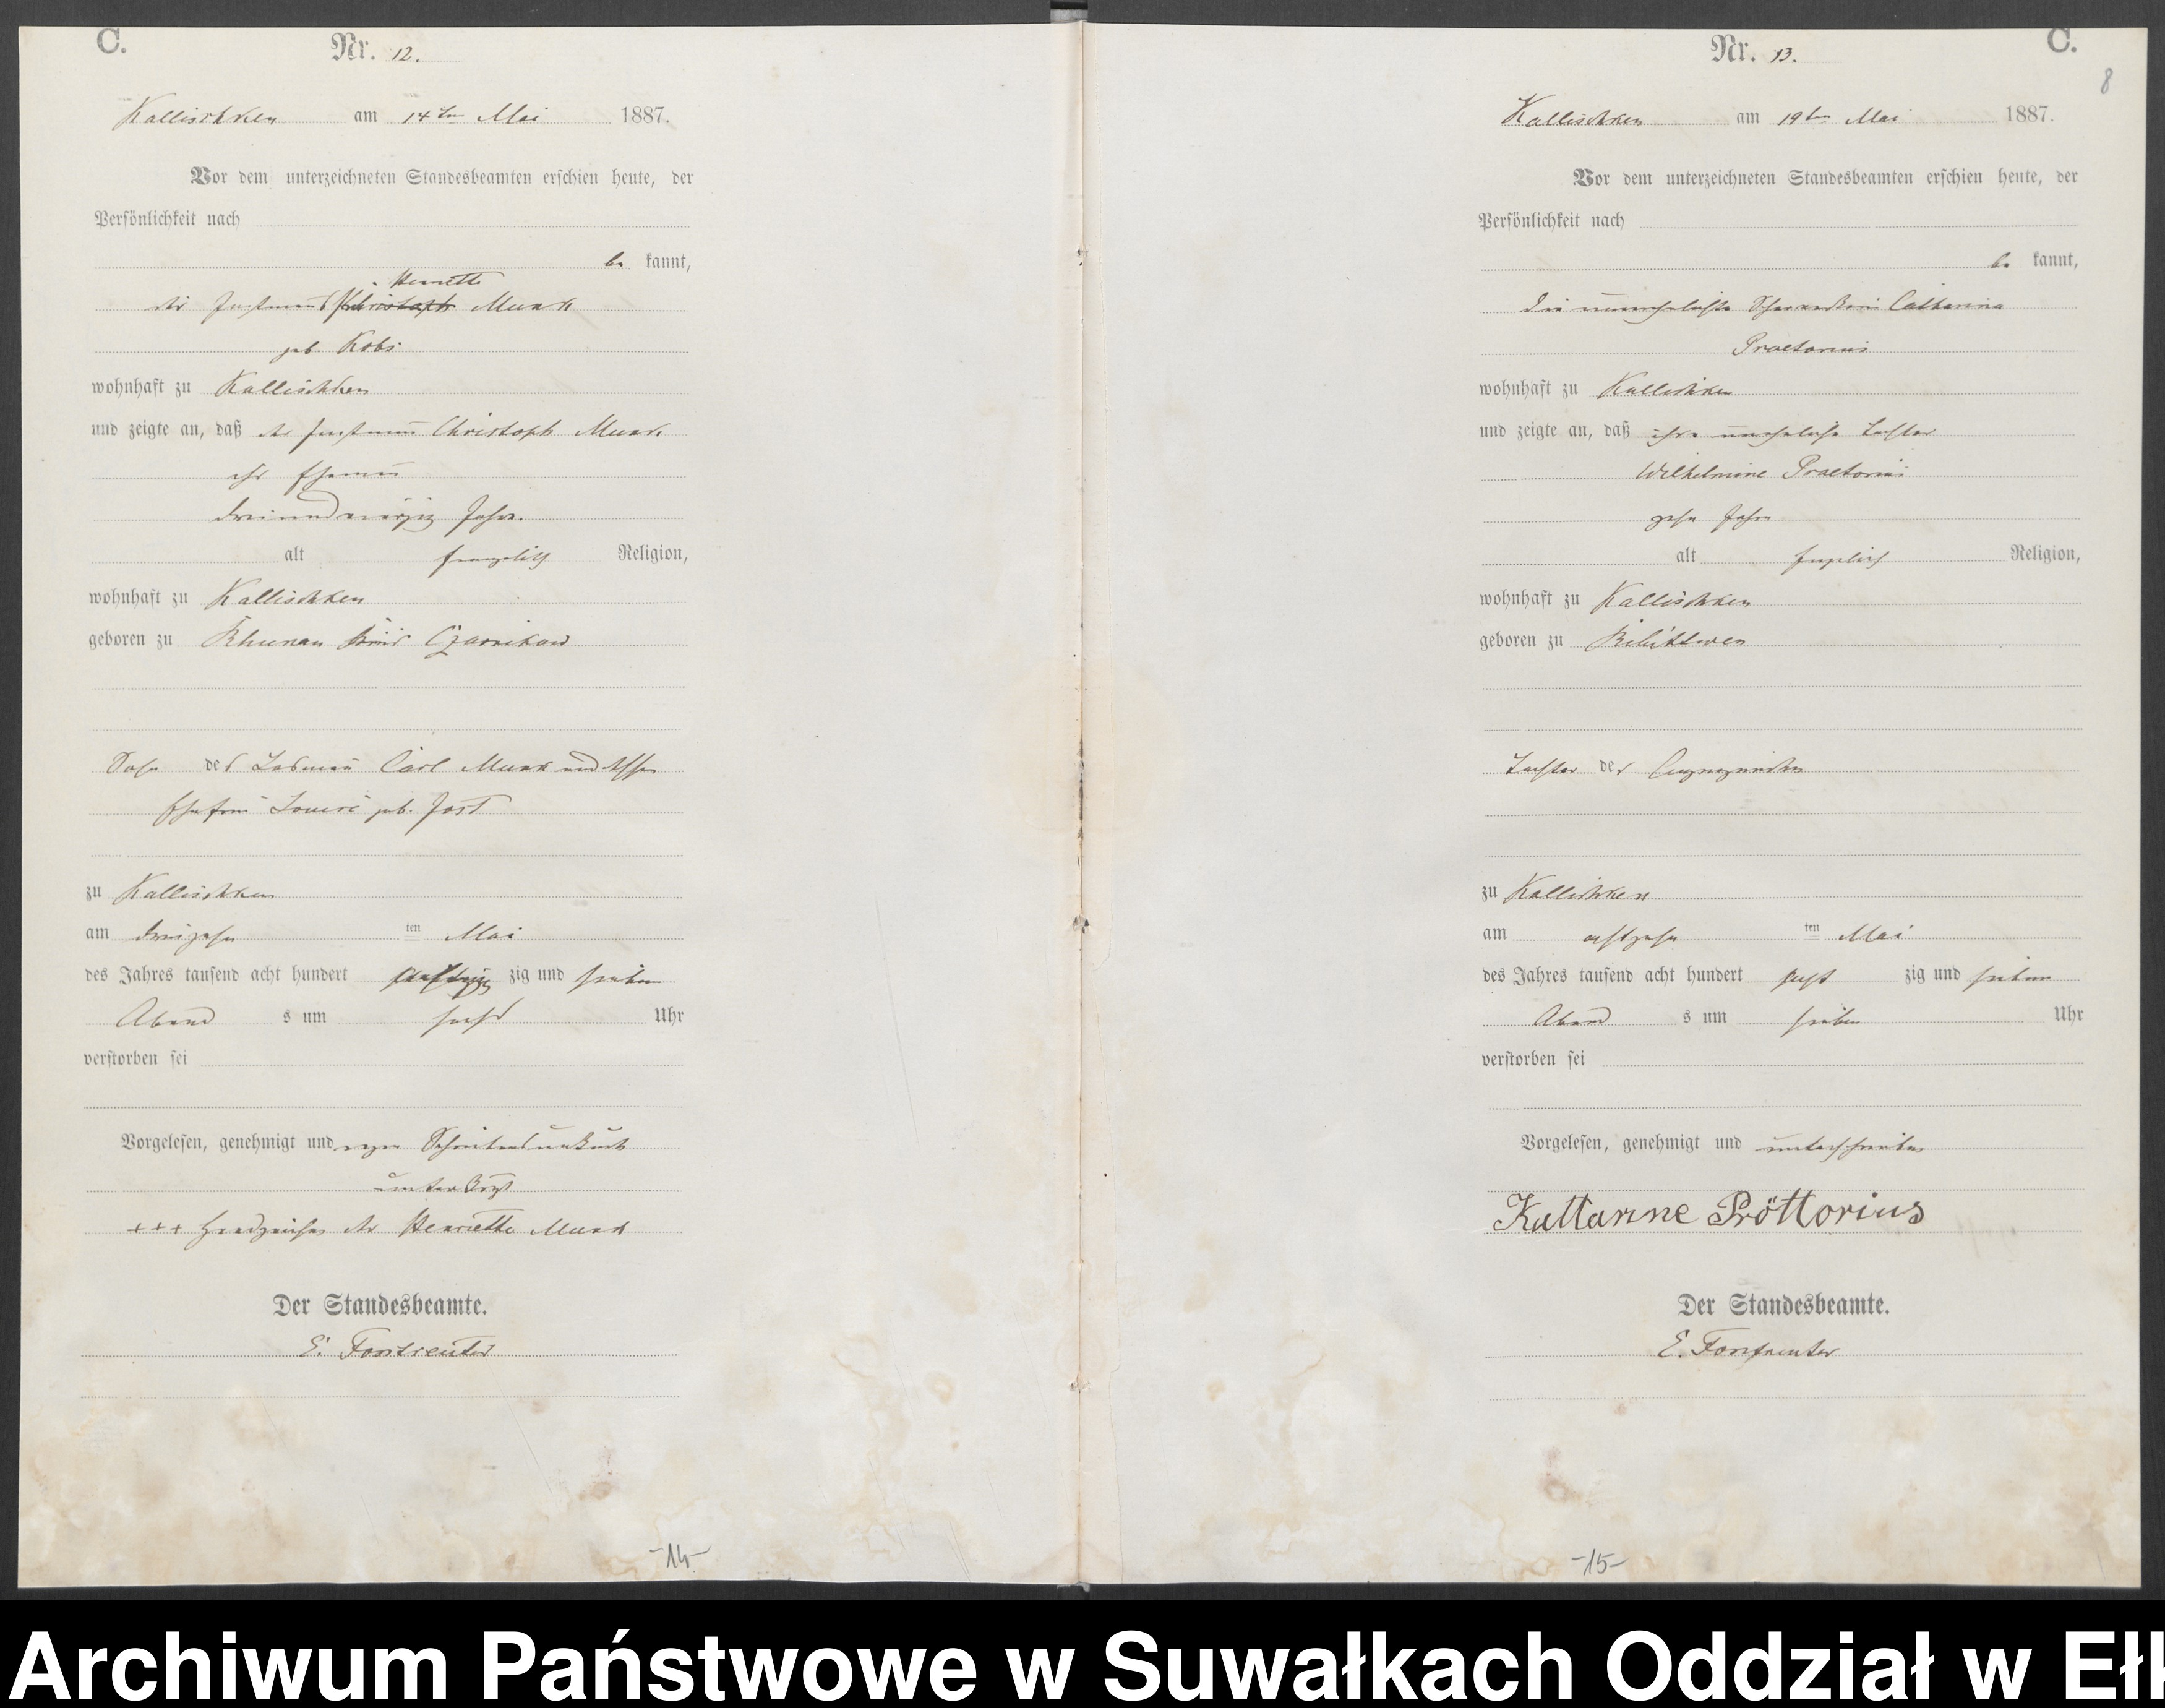 C.
Nr. 12.
Kallischken am 14ten Mai 1887.
Vor dem unterzeichneten Standesbeamten erschien heute, der
Persönlichkeit nach
be kannt,
Henriette
die Instmannsfrau Christoph Munk
geb. Kobs
wohnhaft zu Kallischken
und zeigte an, daß der Instmann Christoph Munk
ihr Ehemann
dreiundvierzig Jahre
alt evangelisch Religion,
wohnhaft zu Kallischken
geboren zu Kreis Czarnikau
Sohn des Losmann Carl Munk und dessen
Ehefrau Louise geb. Jost
zu Kallischken
am dreizehn ten Mai
des Jahres tausend acht hundert achtzig zig und sieben
Abend s um sechs Uhr
verstorben sei
Vorgelesen, genehmigt und wegen Schreibensunkunde
unterkreuzt
+++ Handzeichen der Henriette Munk
Der Standesbeamte.
E. Forstreuter
-14-
Nr. 13.
C.
8
Kallischken am 19ten Mai 1887.
Vor dem unterzeichneten Standesbeamten erschien heute, der
Persönlichkeit nach
be kannt,
die unverehelichte Catharina
Praetorius
wohnhaft zu Kallischken
und zeigte an, daß ihre uneheliche Tochter
Wilhelmine Praetorius
zehn Jahre
alt evangelisch Religion,
wohnhaft zu Kallischken
geboren zu
Tochter der
zu Kallischken
am achtzehn ten Mai
des Jahres tausend acht hundert acht zig und sieben
Abend s um sieben Uhr
verstorben sei
Vorgelesen, genehmigt und unterschrieben
Kattarine Pröttorius
Der Standesbeamte.
E. Forstreuter
-15-
Archiwum Państwowe w Suwałkach Oddział w Ełk